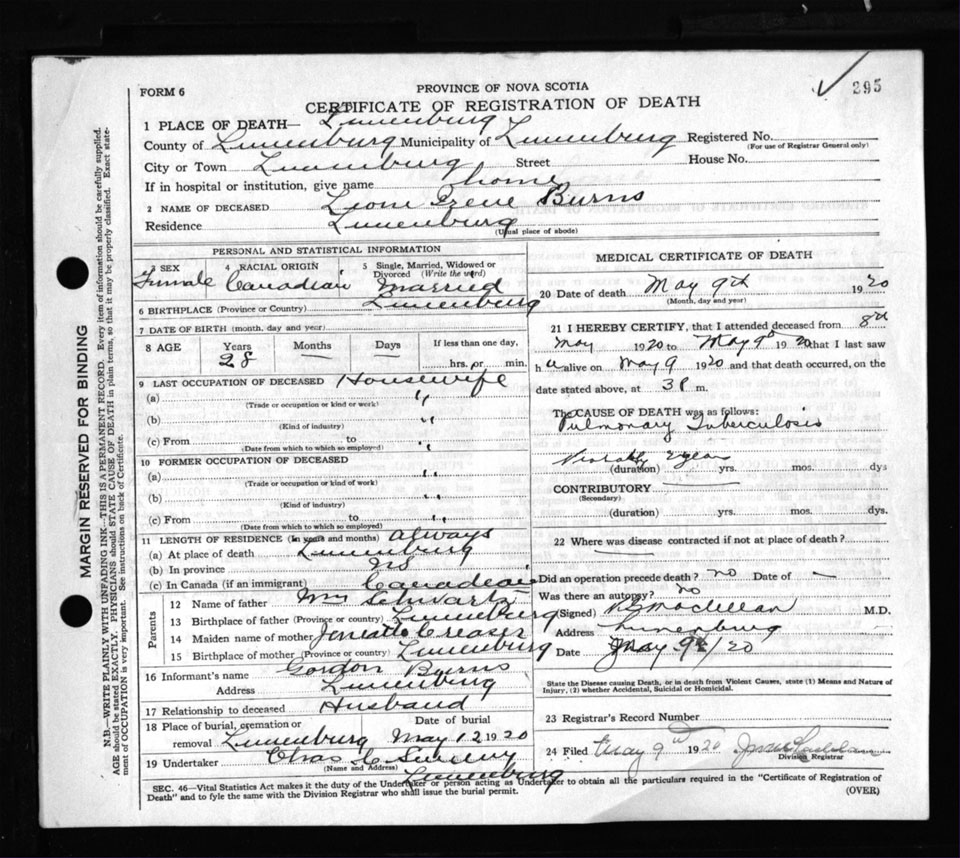 295
FORM 6
PROVINCE OF NOVA SCOTIA
CERTIFICATE OF REGISTRATION OF DEATH
1 PLACE OF DEATH— Lunenburg
County of Lunenburg Municipality of Lunenburg Registered No.
(For use of Registrar General only)
City or Town Lunenburg Street House No.
If in hospital or institution, give name home
2 NAME OF DECEASED Irene Burns
Residence Lunenburg
(Usual place of abode)
PERSONAL AND STATISTICAL INFORMATION
3 SEX Female
4 RACIAL ORIGIN Canadian
5 Single, Married, Widowed or Divorced (Write the word) Married
6 BIRTHPLACE (Province or Country) Lunenburg
7 DATE OF BIRTH (month, day and year)
8 AGE Years Months Days If less than one day,
28 hrs. or min.
9 LAST OCCUPATION OF DECEASED Housewife
(a) "
(Trade or occupation or kind or work)
(b) "
(Kind of industry)
(c) From to "
(Date from which to which so employed)
10 FORMER OCCUPATION OF DECEASED
(a) "
(Trade or occupation or kind of work)
(b)
(Kind of industry)
(c) From to "
(Date from which to which so employed)
11 LENGTH OF RESIDENCE (In years and months) always
(a) At place of death Lunenburg
(b) In province NS
(c) In Canada (if an immigrant) Canadian
Parents
12 Name of father Wm Schwartz
13 Birthplace of father (Province or country) Lunenburg
14 Maiden name of mother Creaser
15 Birthplace of mother (Province or country) Lunenburg
16 Informant's name Gordon Burns
Address Lunenburg
17 Relationship to deceased Husband
18 Place of burial, cremation or Date of burial
removal Lunenburg May 12 1920
19 Undertaker Chas
(Name and Address) Lunenburg
MEDICAL CERTIFICATE OF DEATH
20 Date of death May 9th 1920
(Month, day and year)
21 I HEREBY CERTIFY, that I attended deceased from 8th
May 1920 to May 9th 1920 that I last saw
h alive on May 9 1920 and that death occurred, on the
date stated above, at 3 P m.
The CAUSE OF DEATH was as follows:
Pulmonary Tuberculosis
Probably year
(duration) yrs. mos. dys
CONTRIBUTORY
(Secondary)
(duration) yrs. mos. dys.
22 Where was disease contracted if not at place of death?
Did an operation precede death? no Date of —
Was there an autopsy? no
(Signed) M.D.
Address Lunenburg
Date May 9th/20
State the Disease causing Death, or in death from Violent Causes, state (1) Means and Nature of
Injury, (2) whether Accidental, Suicidal or Homicidal.
23 Registrar's Record Number
24 Filed May 9th 1920
Division Registrar
SEC. 46—Vital Statistics Act makes it the duty of the Undertaker or person acting as Undertaker to obtain all the particulars required in the "Certificate of Registration of
Death" and to fyle the same with the Division Registrar who shall issue the burial permit. (OVER)
MARGIN RESERVED FOR BINDING
N.B.—WRITE PLAINLY WITH UNFADING INK—THIS IS A PERMANENT RECORD. Every item of information should be carefully supplied.
AGE should be stated EXACTLY. PHYSICIANS should STATE CAUSE OF DEATH in plain terms, so that it may be properly classified. Exact state-
ment of OCCUPATION is very important. See instructions on back of Certificate.